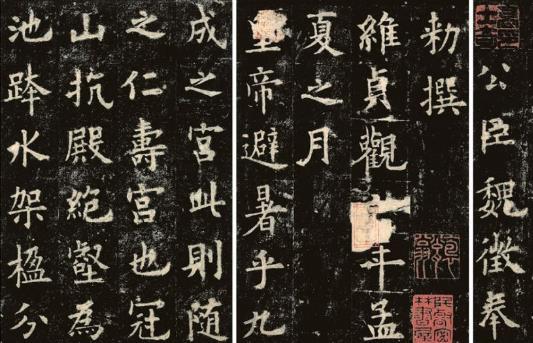 公臣魏徵奉
勅撰
維貞觀年孟
夏之月
皇帝避暑乎九
成之宮此則随
之仁壽宮也冠
山抗殿絶壑為
池跨水架楹分